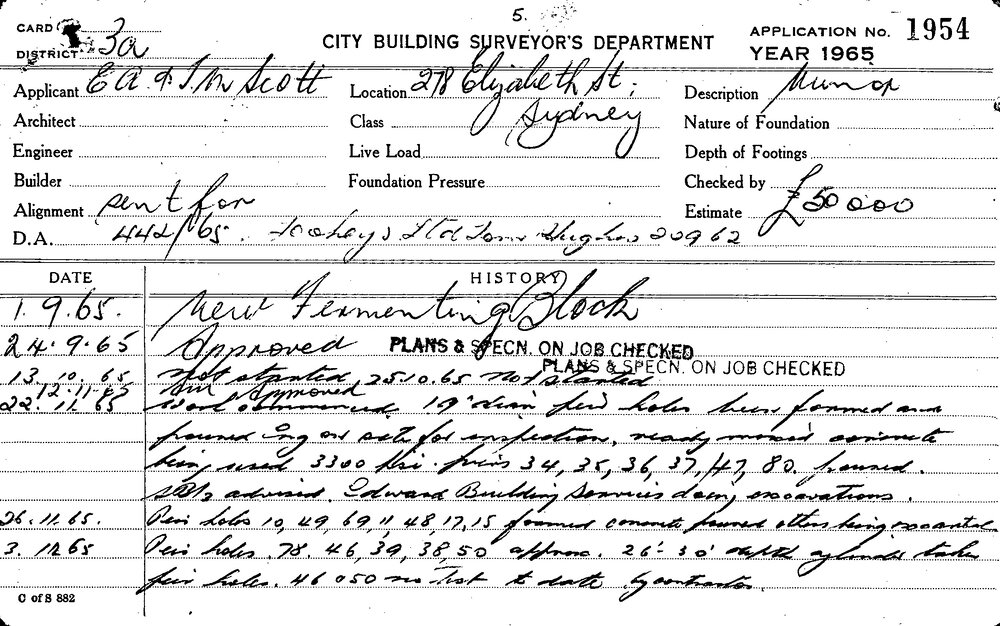 5.
CARD
DISTRICT 3a
CITY BUILDING SURVEYOR'S DEPARTMENT
APPLICATION No. 1954
YEAR 1965
Applicant E A & T. M Scott
Location 278 Elizabeth St;
Sydney
Description
Architect
Class
Nature of Foundation
Engineer
Live Load
Depth of Footings
Builder
Foundation Pressure
Checked by
Alignment sent for
Estimate £50000
D.A. 442/65. Tooheys Ltd Tom Hughes 20962
DATE HISTORY
1. 9. 65. New Fermenting Block
24. 9. 65 Approved PLANS & SPECN. ON JOB CHECKED
PLANS & SPECN. ON JOB CHECKED
13. 10. 65 not started, 25.10.65 not started
12. 11. 65 Approved
22. 11. 65 Work commenced, 19" diam pier holes been formed and
poured Eng on site for inspection, ready mixed concrete
being used 3300 psi. piers 34, 35, 36, 37, 47, 80. poured.
advised. Edward Building Services doing excavations.
26. 11. 65. Pier holes 10, 49, 69, 11, 48, 17, 15 formed concrete poured others being excavated
3. 12 65 Pier holes. 78. 46, 39, 38, 50 approx. 26'- 30' depth cylinder taken
pier holes. 46 050 no test to date by contractor.
C of S 882